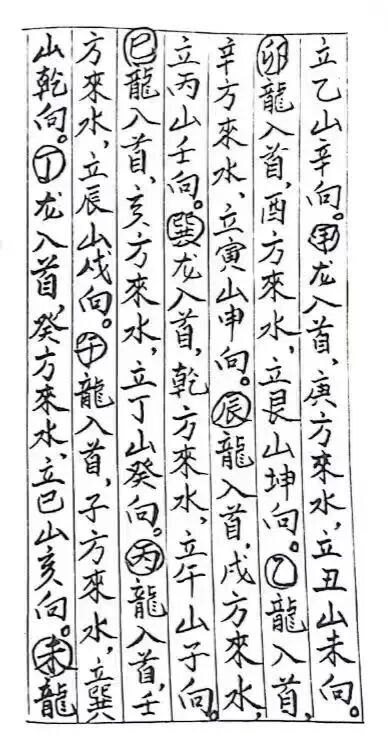 立乙山辛向。甲龙入首,庚方來水,立丑山未向。
卯龍入首,酉方來水,立艮山坤向。乙龍入首,
辛方來水,立寅山申向。辰龍入首,戌方來水,
立丙山壬向。巽龙入首,乾方來水,立午山子向。
巳龍入首,亥方來水,立丁山癸向。丙龍入首,壬
方來水,立辰山戌向。午龍入首,子方來水,立巽
山乾向。丁龙入首,癸方來水,立巳山亥向。未龍